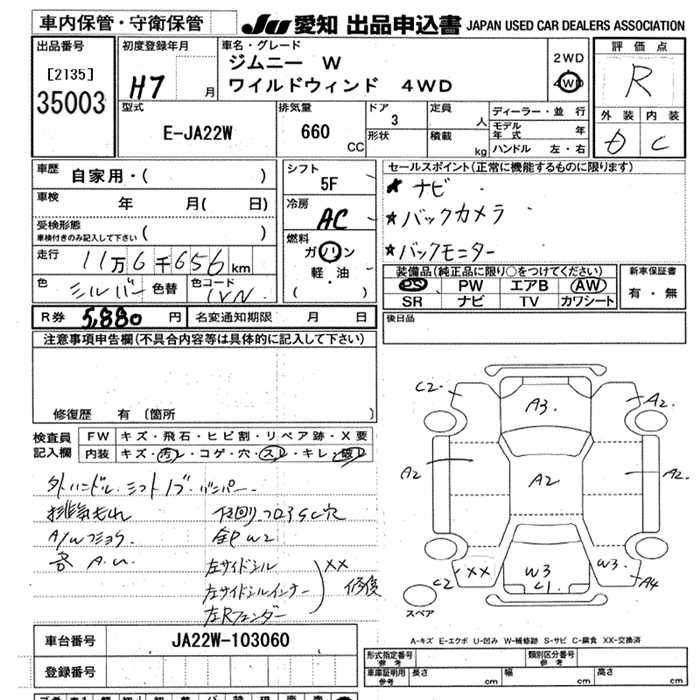 車内保管・守衛保管
JU 愛知 出品申込書 JAPAN USED CAR DEALERS ASSOCIATION
出品番号
[2135]
35003
初度登録年月
H7 月
車名・グレード
ジムニー W
ワイルドウィンド 4WD
2WD
4WD
評価点
R
外装 内装
D C
型式
E-JA22W
排気量
660
CC
ドア
3
形状
定員
人
積載
kg
ディーラー・並行
モデル年式 年
ハンドル 左・右
車歴
自家用・( )
車検 年 月( 日)
受検形態
車検付きのみ記入して下さい ( )
走行
11万6千656km
色
シルバー
色替
色コード
シフト
5F
冷房
AC
燃料
ガソリン
軽・油
( )
セールスポイント(正常に機能するものに限ります)
★ナビ
★バックカメラ
★バックモニター
装備品(純正品に限り○をつけてください)
PS PW エアB AW
SR ナビ TV カワシート
新車保証書
有・無
R券 5,880 円
名変通知期限 月 日
後日品
注意事項申告欄(不具合内容等は具体的に記入して下さい)
修復歴 有〔箇所 〕
検査員
記入欄
FW キズ・飛石・ヒビ割・リペア跡・X要
内装 キズ・汚レ・コゲ・穴・スレ・キレ・破レ
外ハンドル・シフトノブ・バンパー
排気もれ 下回りコロシC穴
A/W
各A.U 左サイドシル XX
左サイドシルインナー 修復
左Rフェンダー
C2
A3
A2
A2
A2
A2
C2
XX
W3
C1
W3
A4
スペア
A-キズ E-エクボ U-凹み W-補修跡 S-サビ C-腐食 XX-交換済
車台番号 JA22W-103060
登録番号
形式指定番号
参考
類別区分番号
参考
車庫証明用
参考
長さ cm
幅 cm
高さ cm